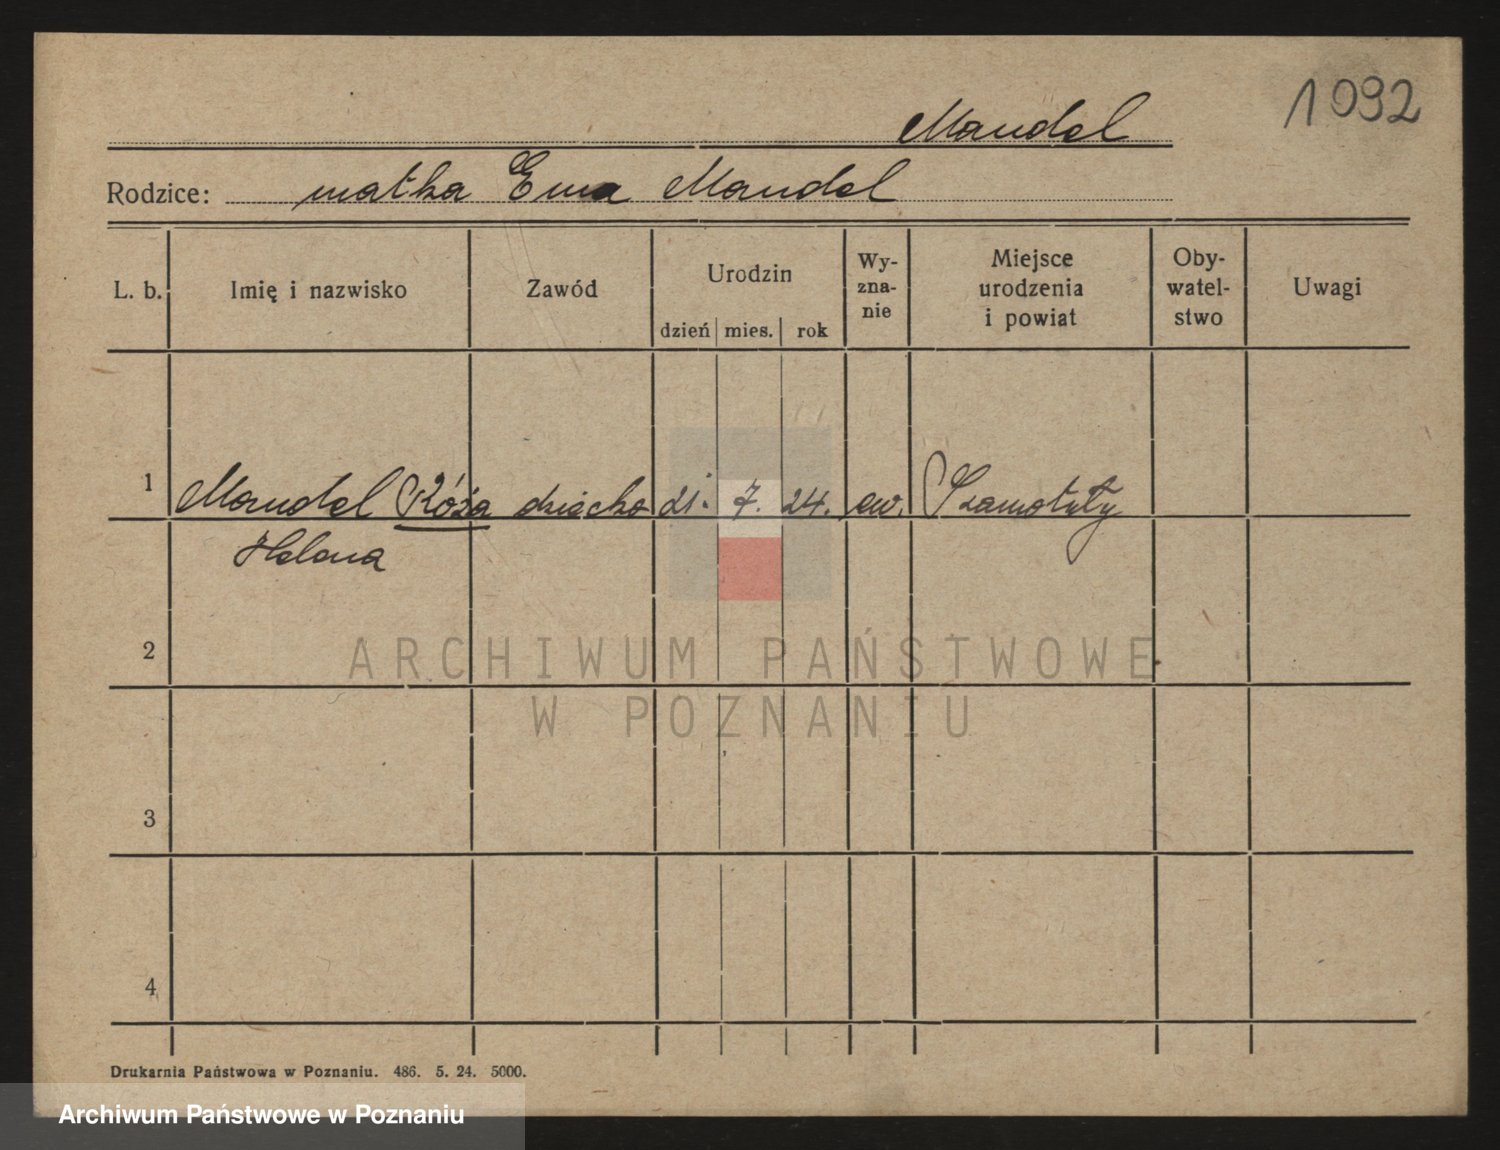 1092
Mandel
Rodzice: matka Ewa Mandel
L. b. Imię i nazwisko Zawód Urodzin dzień mies. rok Wy-zna-nie Miejsce urodzenia i powiat Oby-watel-stwo Uwagi
1 Mandel Róża dziecko 21. 7. 24. ew. Szamotuły
Helena
2
ARCHIWUM PAŃSTWOWE
W POZNANIU
3
4
Drukarnia Państwowa w Poznaniu. 486. 5. 24. 5000.
Archiwum Państwowe w Poznaniu